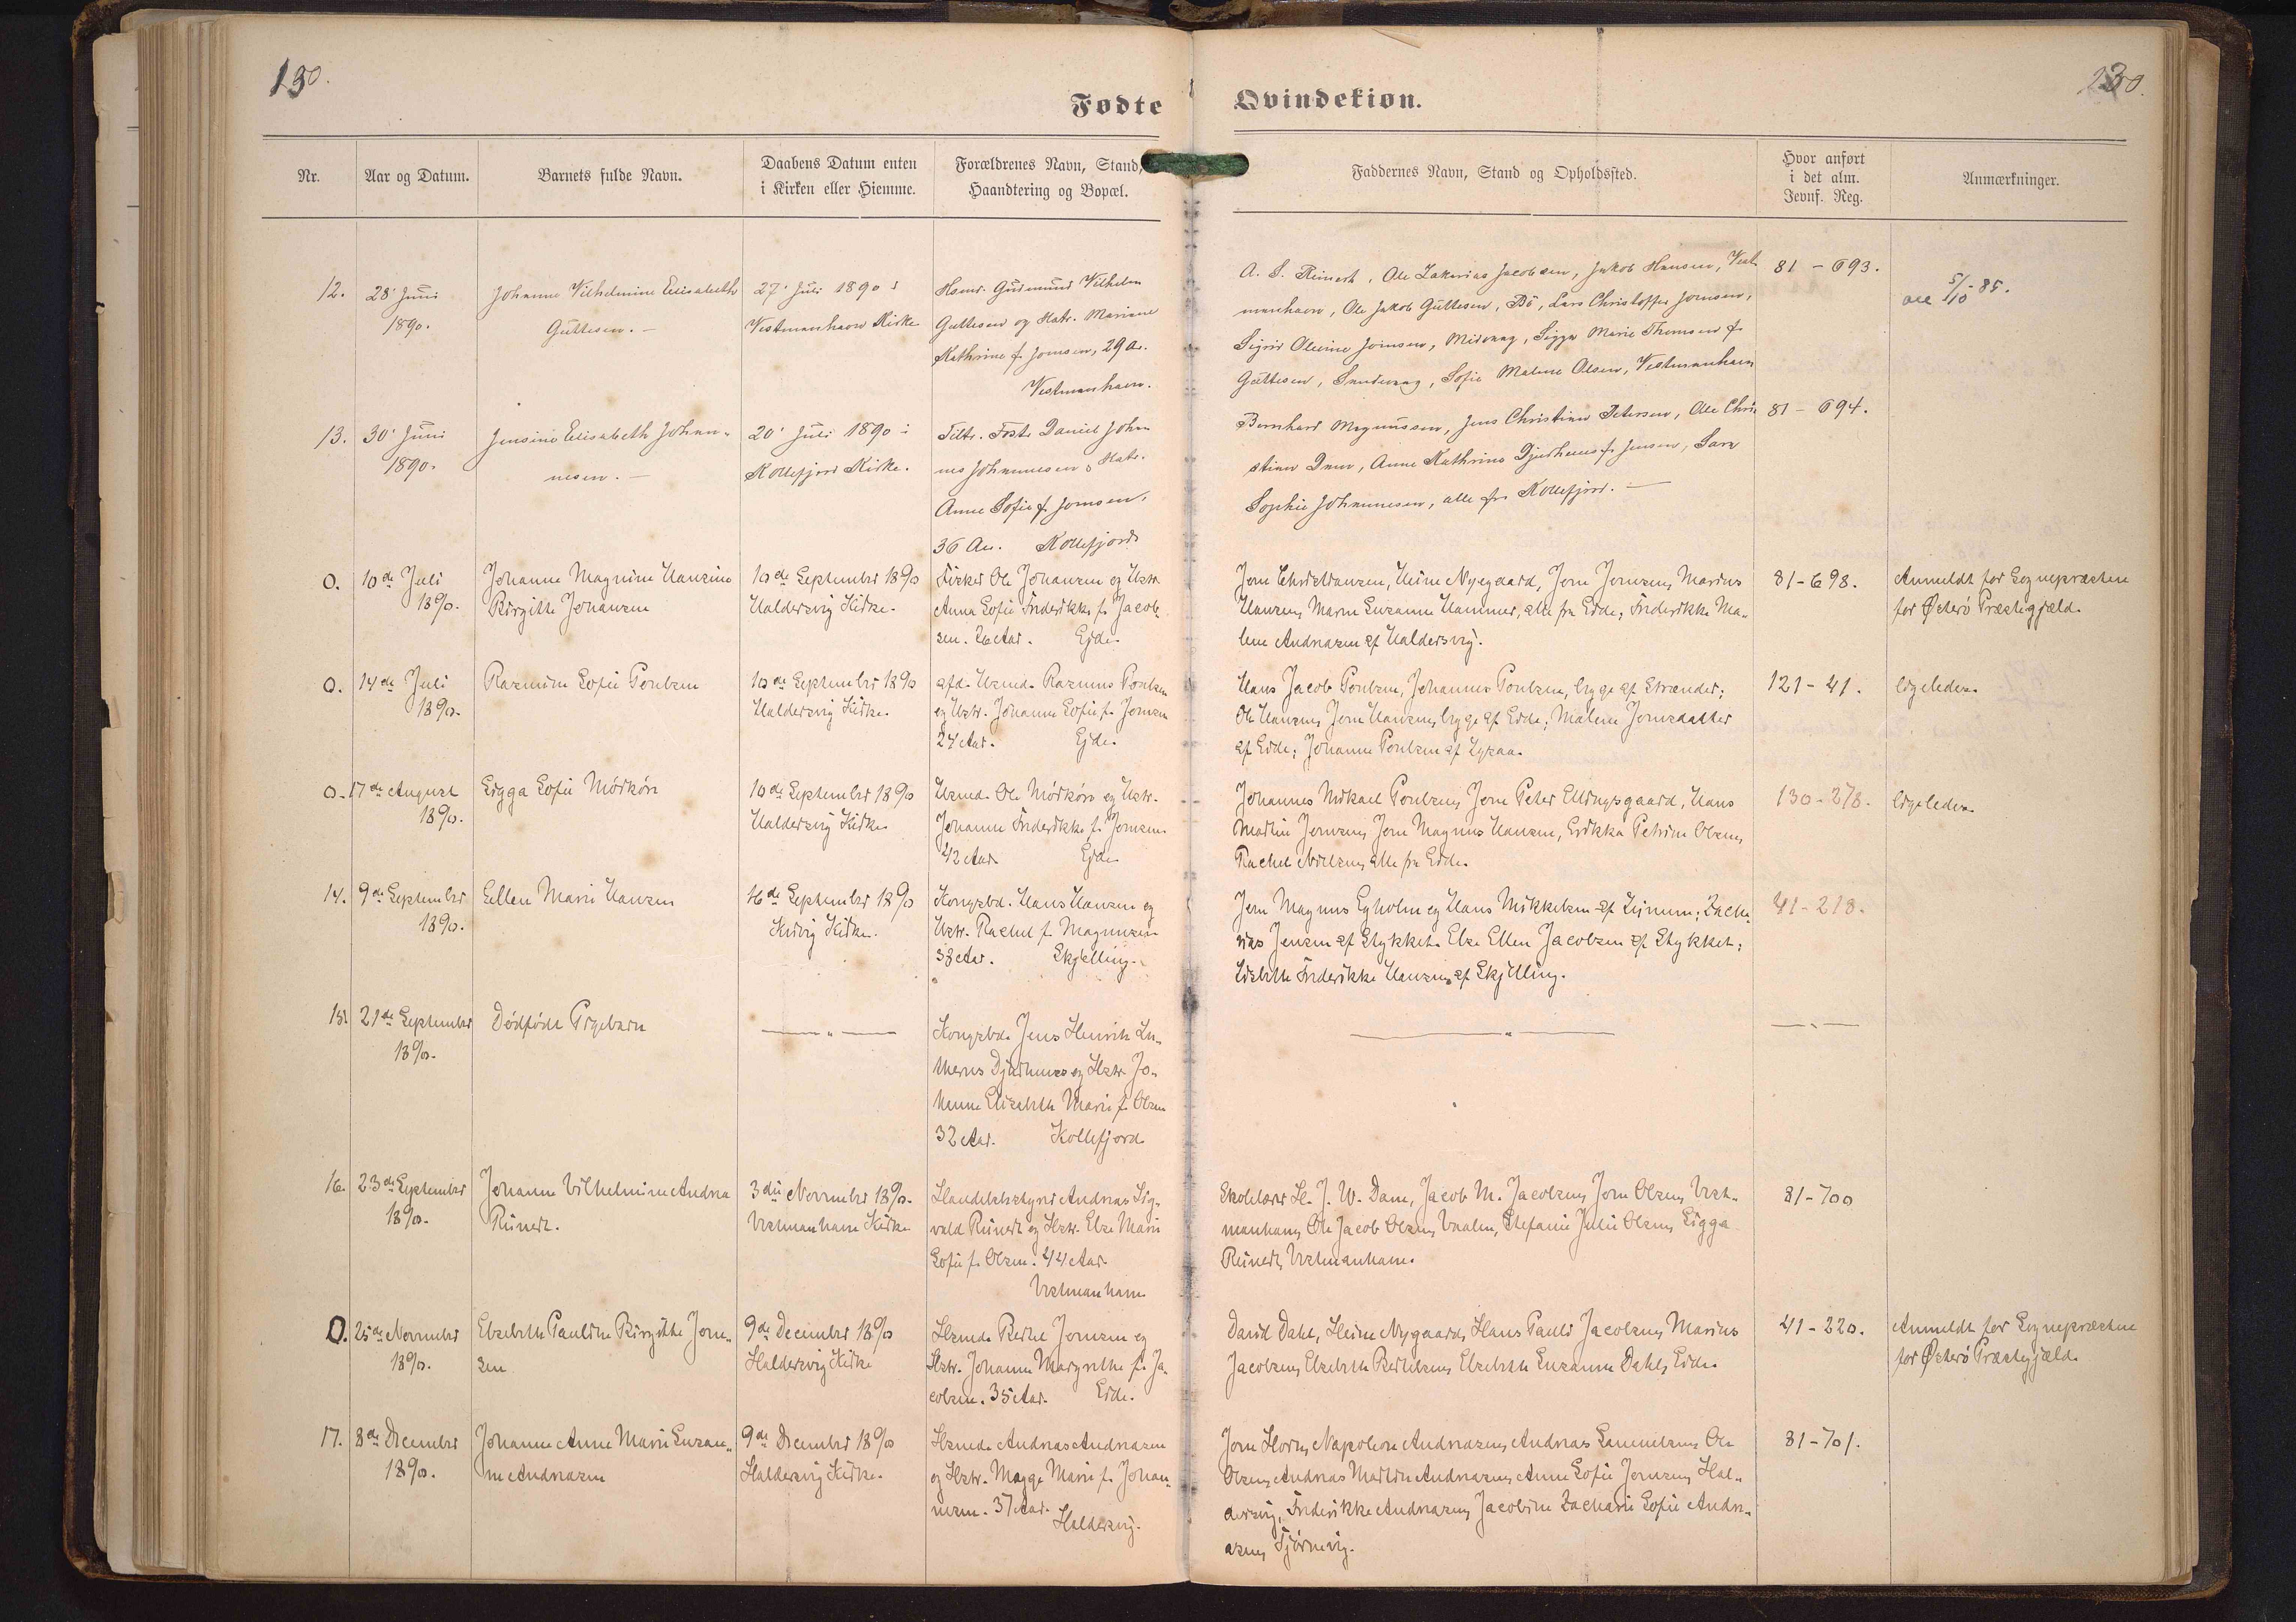 130.
130.
Fødte
Qvindekiøn.
Nr.
Aar og Datum.
Barnets fulde Navn.
Daabens Datum enten
i Kirken eller Hiemme.
Forældrenes Navn, Stand,
Haandtering og Bopæl.
Faddernes Navn, Stand og Opholdssted.
Hvor anført
i det alm.
Jevnf. Reg.
Anmærkninger.
12.
28' Juni
1890.
Johanne Vilhelmine Elisabeth
Guttesen. —
27' Juli 1890 i
Vestmanhavn Kirke
Husmd. Gudmund Vilhelm
Guttesen og Hstr. Mariane
Kathrine f. Joensen, 29 Aar.
Vestmanhavn.
A. S. Reinert, Ole Zakarias Jacobsen, Jakob Hansen, Vest
manhavn, Ole Jakob Guttesen, Bö, Lars Christoffer Joensen,
Sigrid Olevine Joensen, Midvaag, Sigga Marie Thomsen f.
Guttesen, Sandevaag, Sofie Malene Olsen, Vestmanhavn
81 - 693.
5/10 - 85.
13.
30' Juni
1890.
Jensine Elisabeth Johan-
nesen. —
20' Juli 1890 i
Kollefjord Kirke.
Daniel Johan
nes Johannesen, Hstr.
Anne Sofie f. Joensen,
36 Aar. Kollefjord
Bernhard Magnussen, Jens Christian Petersen, Ole Chri
stian Dam, Anne Kathrine Djurhuus f. Jensen, Sara
Sophie Johannesen, alle fra Kollefjord. —
81 - 694.
0.
10de Juli
1890.
Johanne Magnine Hansine
Birgithe Johansen
10de September 1890
Haldersvig Kirke.
Fisker Ole Johansen og Hstr.
Anna Sofie Frederikke f. Jacob-
sen. 26 Aar. Ejde.
Joen Chr. Hansen, Heine Nysgaard, Joen Joensen, Marius
Hansen, Maren Susanne Hammer, alle fra Eide; Frederikke Ma-
lene Andreasen af Haldersvig.
81-698.
Anmeldt for Sognepræsten
for Østerö Præstegjæld.
0.
14de Juli
1890.
Rasmine Sofie Poulsen
10de September 1890
Haldersvig Kirke.
afd. Husmd. Rasmus Poulsen
og Hstr. Johanne Sofie f. Joensen
24 Aar. Ejde.
Hans Jacob Poulsen, Johannes Poulsen, begge af Strænder;
Ole Hansen, Joen Hansen, begge af Eide; Malene Joensdatter
af Eide; Johanne Poulsen af Zyraa.
121-41.
ligeledes.
0.
17de August
1890.
Sigga Sofie Mörköre
10de September 1890
Haldersvig Kirke
Husmd. Ole Mörköre og Hstr.
Johanne Frederikke f. Joensen
42 Aar. Ejde
Johannes Mikael Poulsen, Joen Peter Ellingsgaard, Hans
Martin Joensen, Joen Magnus Hansen, Erikka Petrine Olsen,
Rachel Nielsen, alle fra Eide.
130-278.
ligeledes.
14.
9de September
1890.
Ellen Marie Hansen
16de September 1890
Kvivig Kirke.
Kongsbd. Hans Hansen og
Hstr. Rachel f. Magnussen
38 Aar. Skjelling.
Joen Magnus Egholm og Hans Mikkelsen af Lejnum; Zacha-
rias Jensen af Stykket. Else Ellen Jacobsen af Stykket;
Lisbeth Frederikke Hansen, af Skjelling.
41-218.
15.
21de September
1890.
Dödfödt Pigebarn
— „ —
Kongsbd. Jens Henrik Lu-
therus Djurhuus og Hstr. Jo-
hanne Elisabeth Marie f. Olsen
32 Aar. Kollefjord
— „ —
— „ —
16.
23de September
1890.
Johanne Vilhelmine Andrea
Reinert.
3die November 1890.
Vestmanhavn Kirke
Handelsbestyrer Andreas Sig-
vald Reinert og Hstr. Else Marie
Sofie f. Olsen. 44 Aar.
Vestmanhavn
Skolelærer H. J. W. Dam, Jacob M. Jacobsen, Joen Olsen, Vest-
manhavn, Ole Jacob Olsen, Vaalen, Stefanie Julie Olsen, Sigga
Reinert, Vestmanhavn.
81-700
0.
25de November
1890.
Elsebeth Pauline Birgithe Joen-
sen
9de December 1890
Haldersvig Kirke
Husmd. Joensen og
Hstr. Johanne Margrethe f. Ja-
cobsen. 35 Aar. Eide.
David Dahl, Heine Nysgaard, Hans Pauli Jacobsen, Marius
Jacobsen, Elsebeth Elsebeth Susanne Dahl, Eide.
41-220.
Anmeldt for Sognepræsten
for Østerö Præstegjæld.
17.
8de December
1890.
Johanne Anne Marie Susan-
ne Andreasen
9de December 1890
Haldersvig Kirke.
Husmd. Andreas Andreasen
og Hstr. Magge Marie f. Johan-
nesen. 37 Aar.
Haldersvig.
Joen Horn, Napoleon Andreasen, Andreas Samuelsen, Ole
Olsen, Andreas Martin Andreasen, Anne Sofie Joensen, Hal-
dersvig, Frederikke Andreasen, Jacobine Zacharie Sofie Andre-
asen, Tjörnevig.
81-701.